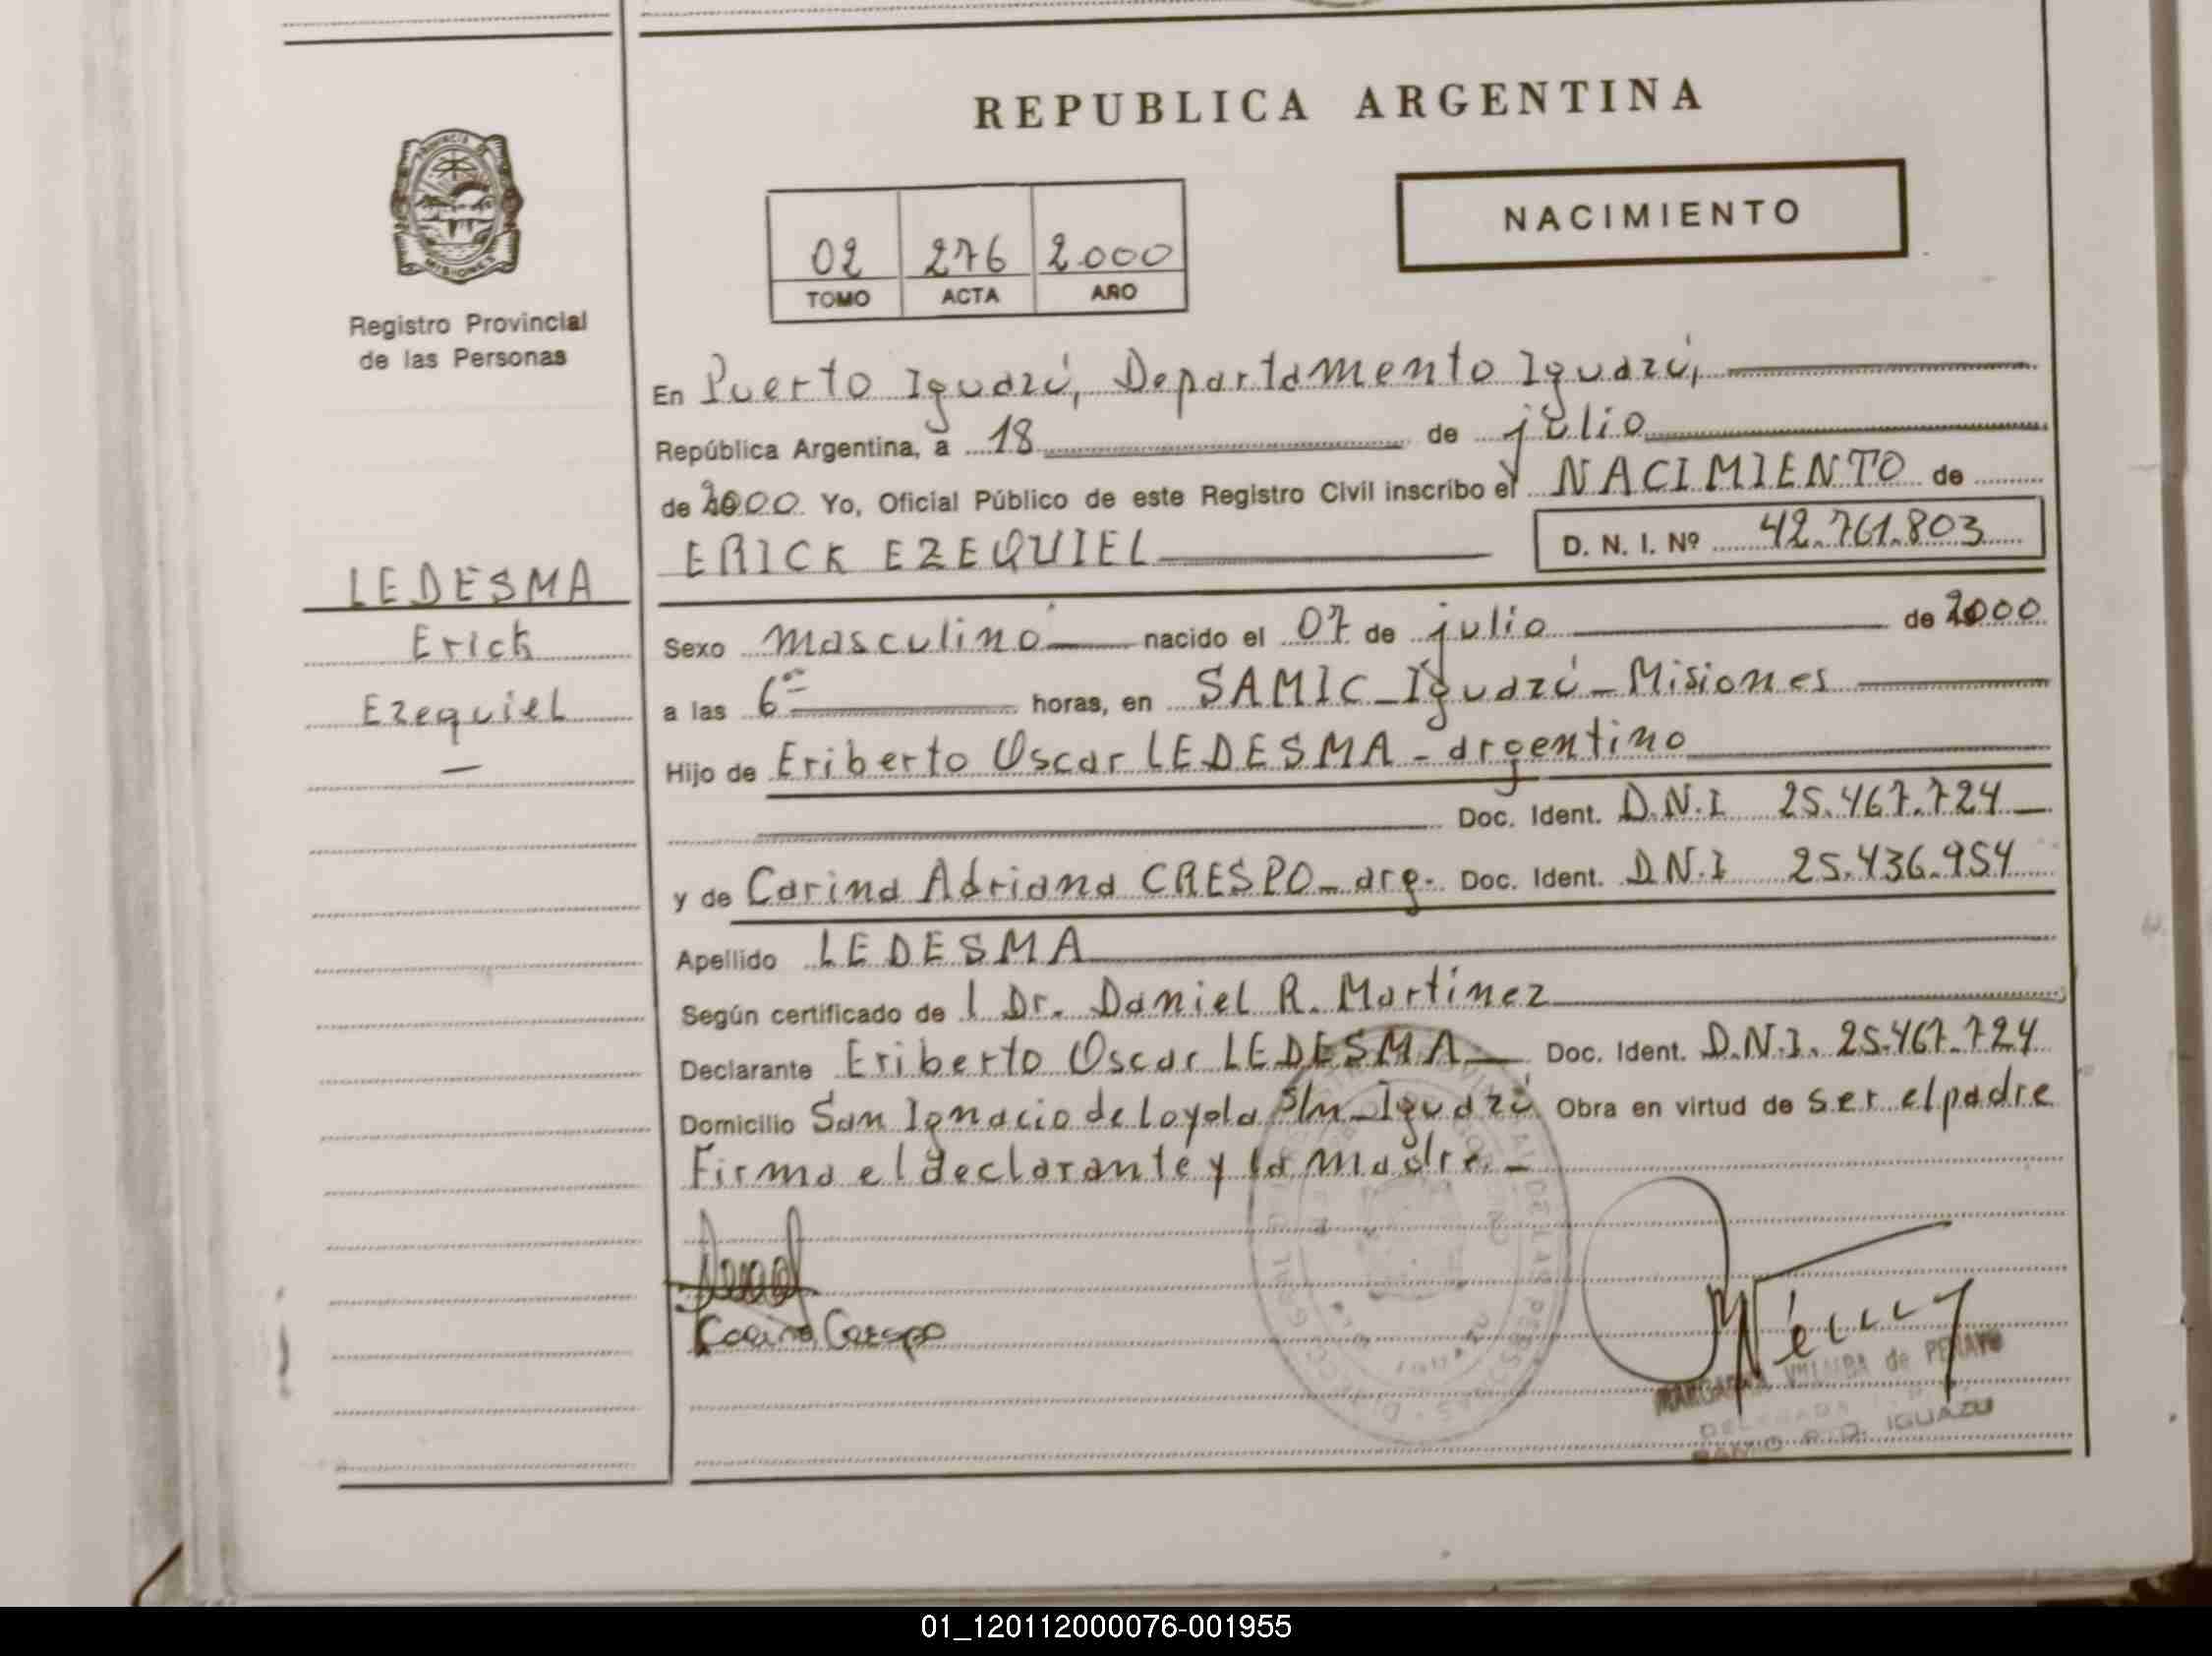 REPUBLICA ARGENTINA
NACIMIENTO
02 276 2.000
TOMO ACTA AÑO
PROVINCIA DE
MISIONES
Registro Provincial
de las Personas
LEDESMA
Erick
Ezequiel
En Puerto Iguazú, Departamento Iguazú,
República Argentina, a 18 de julio
de 2000 Yo, Oficial Público de este Registro Civil inscribo el NACIMIENTO de
ERICK EZEQUIEL D. N. I. Nº 42.761.803
Sexo masculino nacido el 07 de julio de 2000
a las 6 horas, en SAMIC - Iguazú - Misiones
Hijo de Eriberto Oscar LEDESMA - argentino
Doc. Ident. D.N.I 25.467.724
y de Carina Adriana CRESPO - arg. Doc. Ident. D.N.I 25.436.954
Apellido LEDESMA
Según certificado de l Dr. Daniel R. Martinez
Declarante Eriberto Oscar LEDESMA Doc. Ident. D.N.I. 25.467.724
Domicilio San Ignacio de Loyola s/n - Iguazú Obra en virtud de ser el padre
Firma el declarante y la madre. -
Carina Crespo
MARGARITA VILLALBA de PENAYO
DELEGADA
IGUAZU
01_120112000076-001955